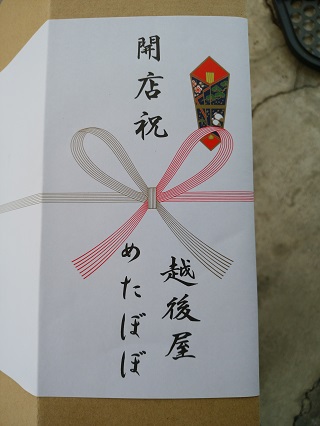 開店祝
越後屋
めたぼぼ